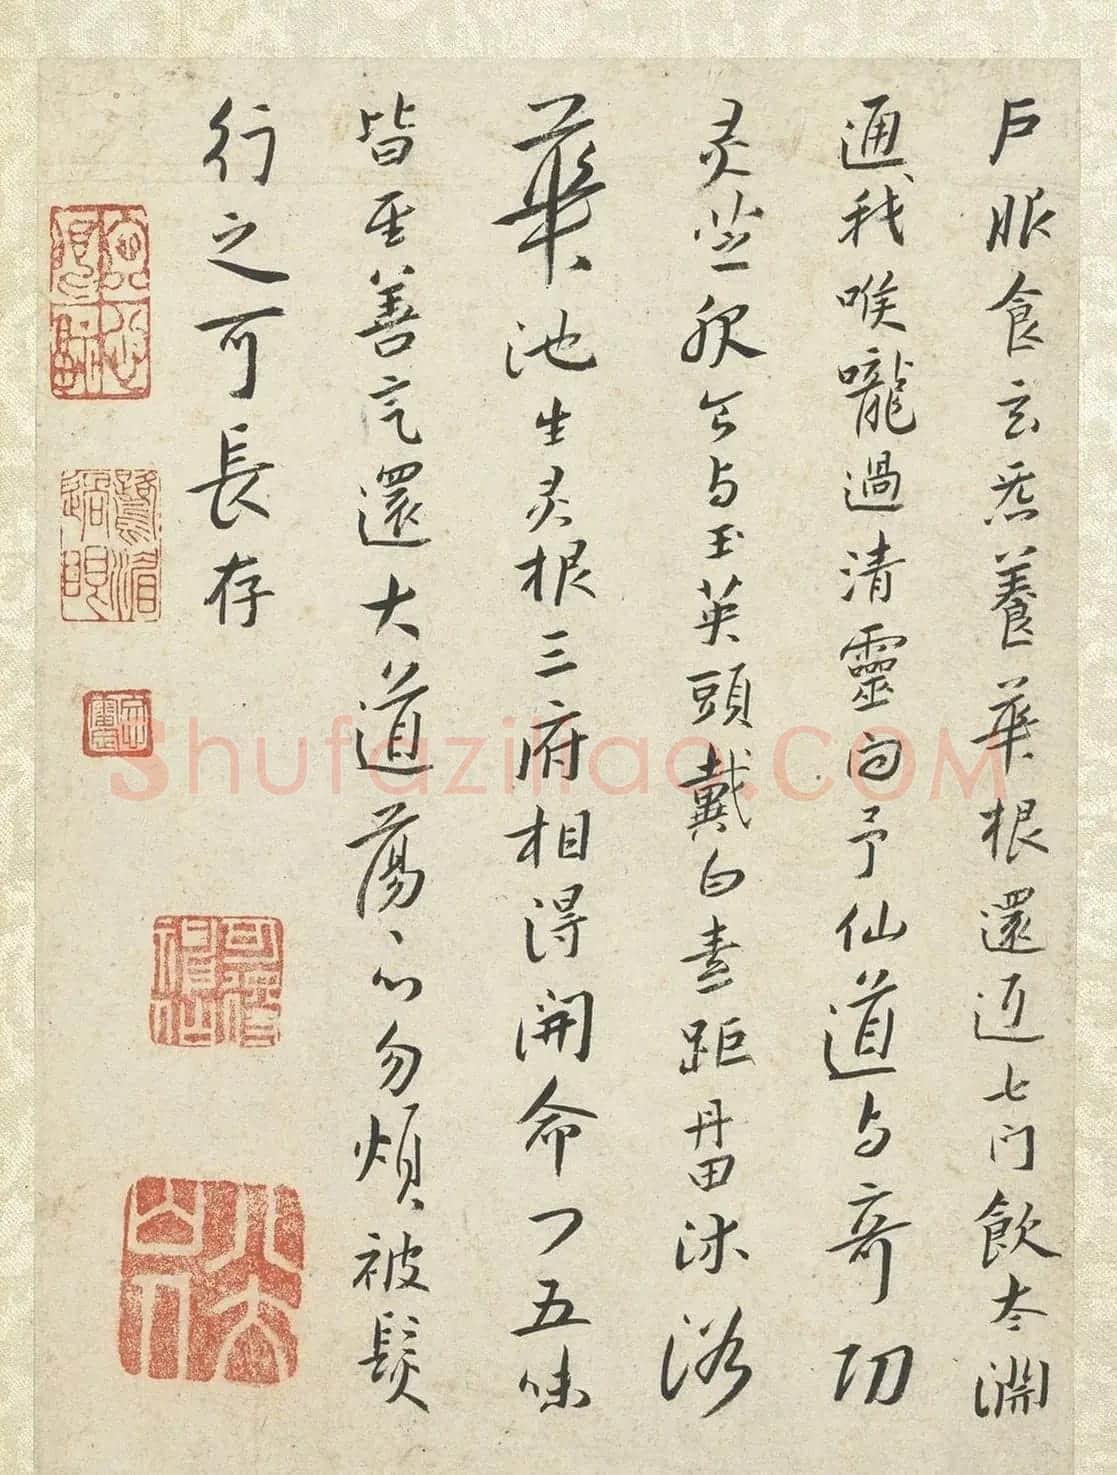 戶服食玄炁養華根還返七门飲太淵
通我喉嚨過清靈问予仙道与奇功
灵芝与玉英頭戴白素距丹田沐浴
華池生灵根三府相得開命门五味
皆至善气還大道蕩〻心勿煩被髮
行之可長存
Shufaziliao.COM